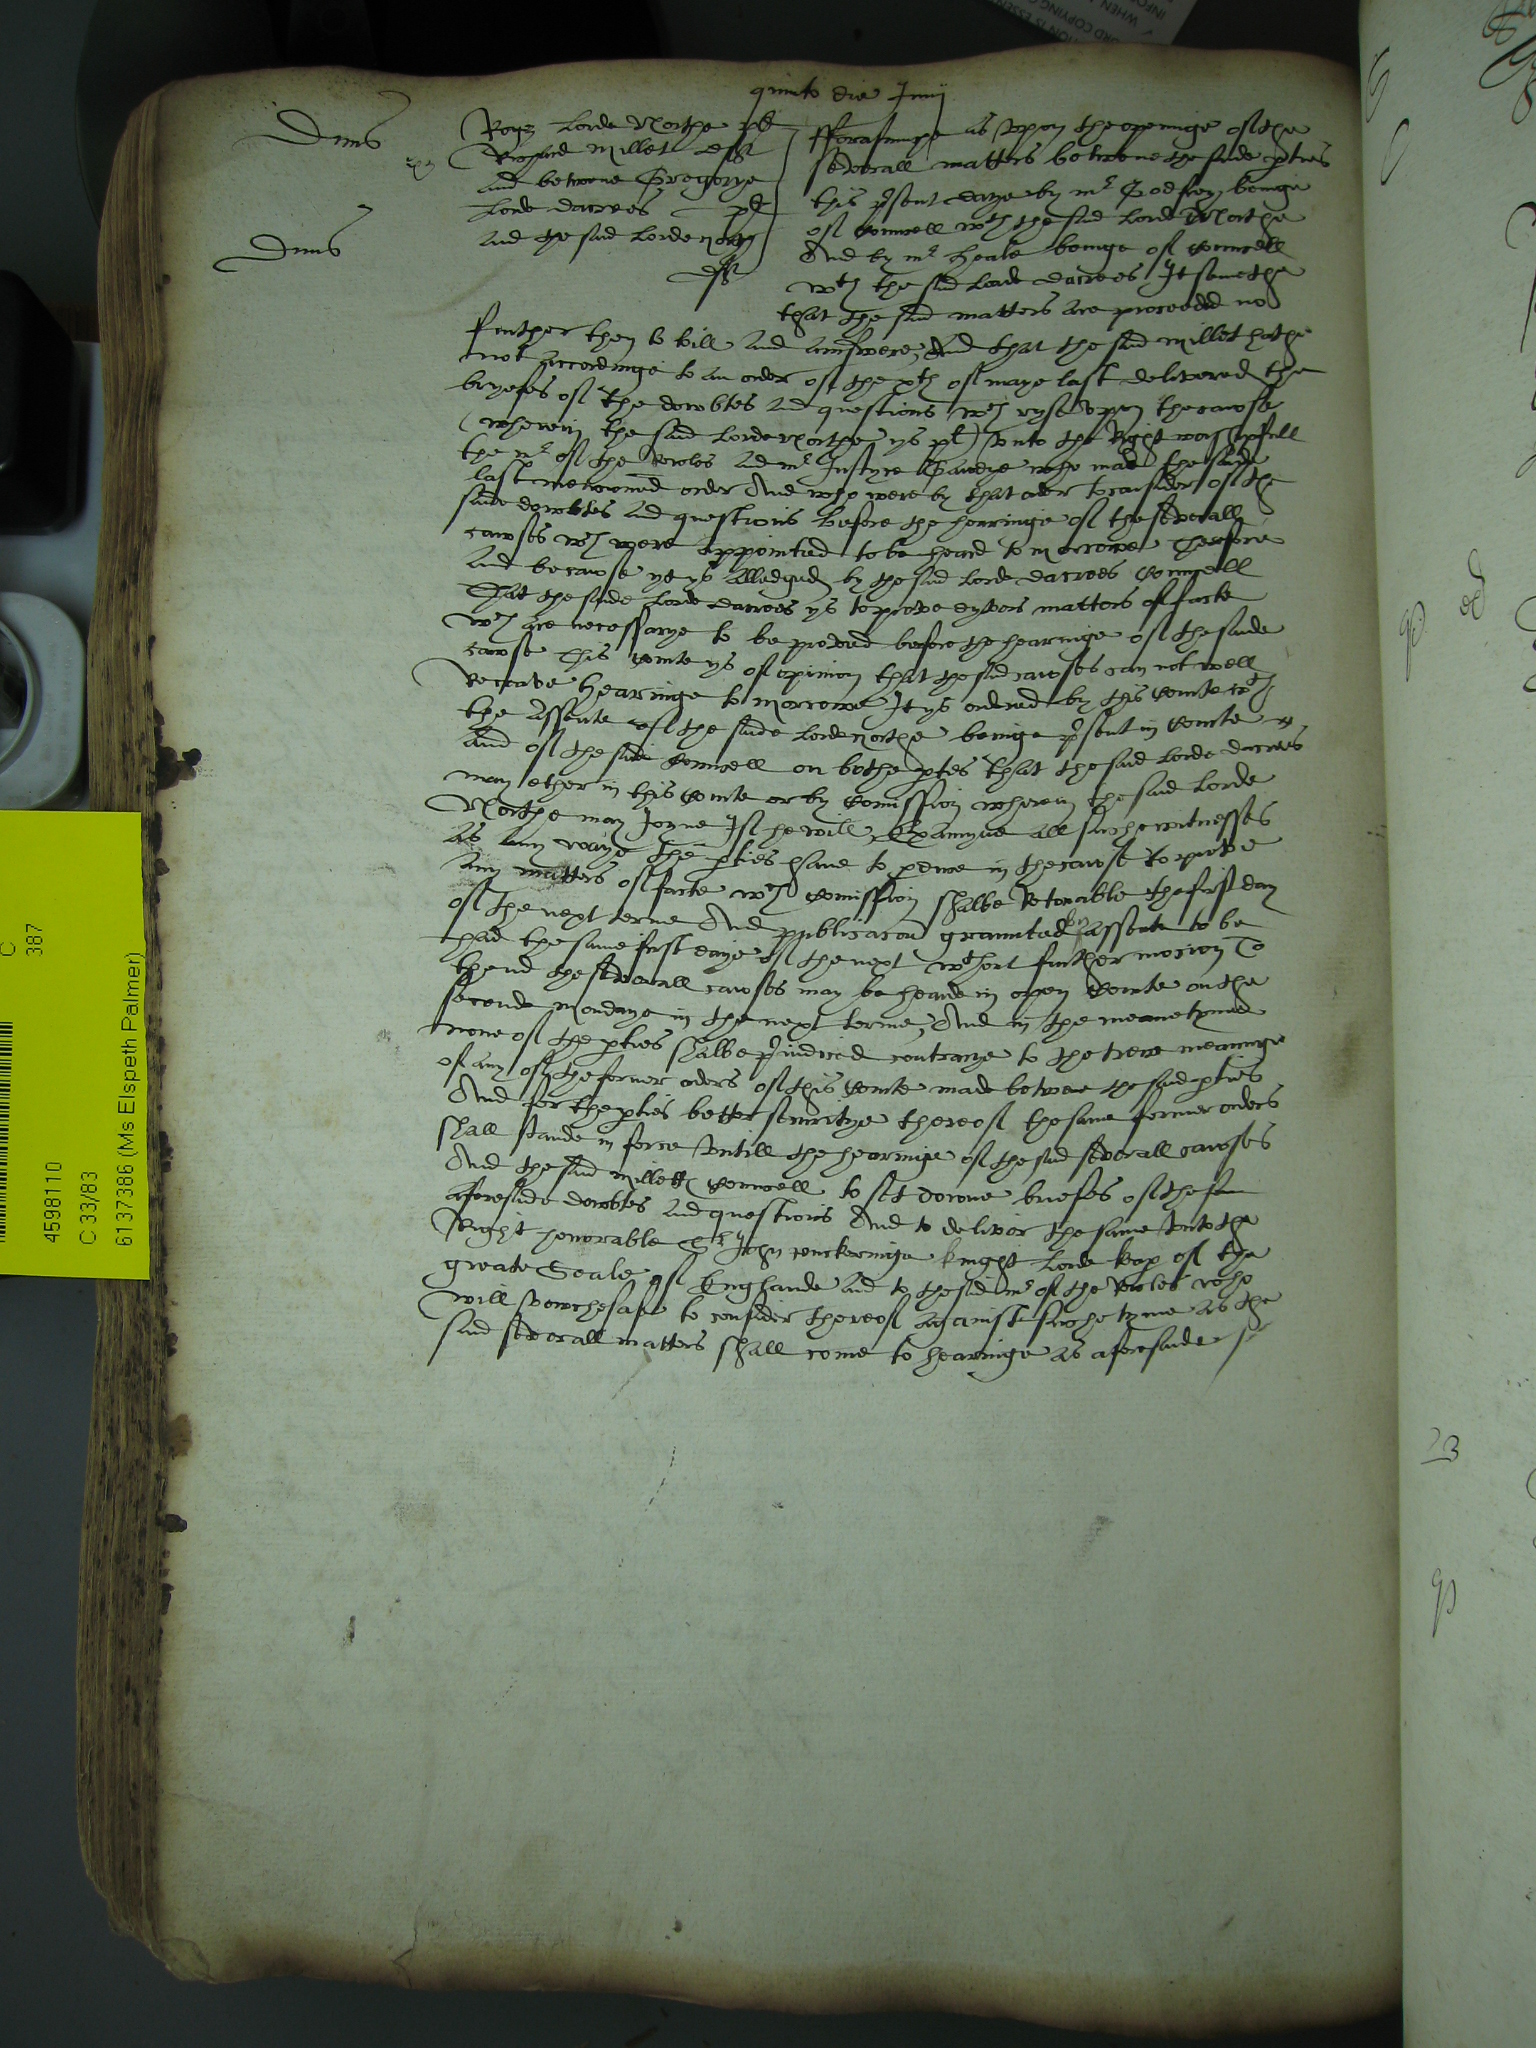 quinto die Junij
Dns
Dns
Rogr Lorde Northe pl
Richard Millet deft
and betwene Gregorye
Lorde dacrees pl
and the said Lorde North
deft
fforasmuche as vpon the openinge of the
severall matters betwene the saide pties
this psent daye by mr Godfrey beinge
of councell wth the said Lorde Northe
And by mr heale beinge of councell
wth the said Lorde dacrees It semethe
that the said matters are proceeded no
further then to bill and answere, And that the said Millet hathe
not accordinge to an order of the xth of maye last delivered the
bryefes of the dowbtes and questions wch ryse vppon the cawse
(wherein the said Lorde Northe ys pl) vnto the Right worshipfull
the mr of the Rooles and mr Justyce who made the saide
last mencioned order And who were by that order to consider of the
saide dowbtes and questions before the hearringe of the severall
cawses wch were appointed to be heard to morrowe Therfore
and because yt ys alledged by the said Lorde dacrees councell
That the saide Lorde dacrees ys to prove dyvers matters of facte
wch are necessarye to be proved before the hearinge of the saide
cawse This courte ys of opinion that the said cawses can not well
receave hearinge to morrowe It ys ordered by this courte wth
the assente of the saide Lorde Northe beinge psent in courte
and of the said councell on bothe ptes that the said Lorde dacrees
may ether in this courte or by comission wherein the said Lorde
Northe may Joyne If he will, Examyne all suche witnesses
as any waye the pties have to pduce in the cawse to prove
any matters of facte wch comission shalbe Retornable the first day
of the next terme And publicacon graunted by assente to be
had the same first daye of the next wthout further mocion To
thend the severall cawses may be hearde in open courte on the
seconde Mondaye in the next terme, And in the meane tyme
none of the pties shalbe piudiced contrarye to the trewe meaninge
of any of the former orders of this courte made betwene the said pties
And for the pties better securitye thereof the same former orders
shall stande in force vntill the hearinge of the said severall cawses
And the said Milletts councell to set downe briefes of the same
aforesaide dowbtes and questions And to deliver the same vnto the
Right honorable Sr John Puckeringe knight Lorde kep of the
greate Seale of Englande and to the said mr of the Rooles who
will vowchesafe to consider thereof against suche tyme as the
said severall matters shall come to hearinge as aforesaide
C
387
4598110
C 33/83
6137386 (Ms Elspeth Palmer)